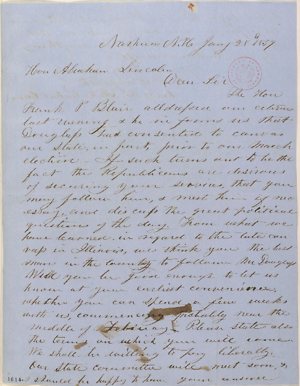 Nashua N.H. Jany 28th 1859
Hon Abraham Lincoln
Dear Sir
The Hon
Frank P Blair addressed our citizens
last evening & he informs us that
Douglass had consented to canvass
our state, in part, prior to our March
election. If such turns out to be the
fact the Republicans are desirous
of securing your services, that you
may follow him, & meet him if ne-
cessary, and discuss the great political
questions of the day. From what we
have learned in regard to the late can-
vass in Illinois, we think you the best
man in the country to follow Mr Douglass
Will you be kind enough to let us
know at your earliest convenience,
whether you can spend a few weeks
with us, commencing probably near the
middle of February. Please state also
the terms on which you will come.
We shall be willing to pay liberally.
Our State committee will meet soon, &
I should be happy to have your answer